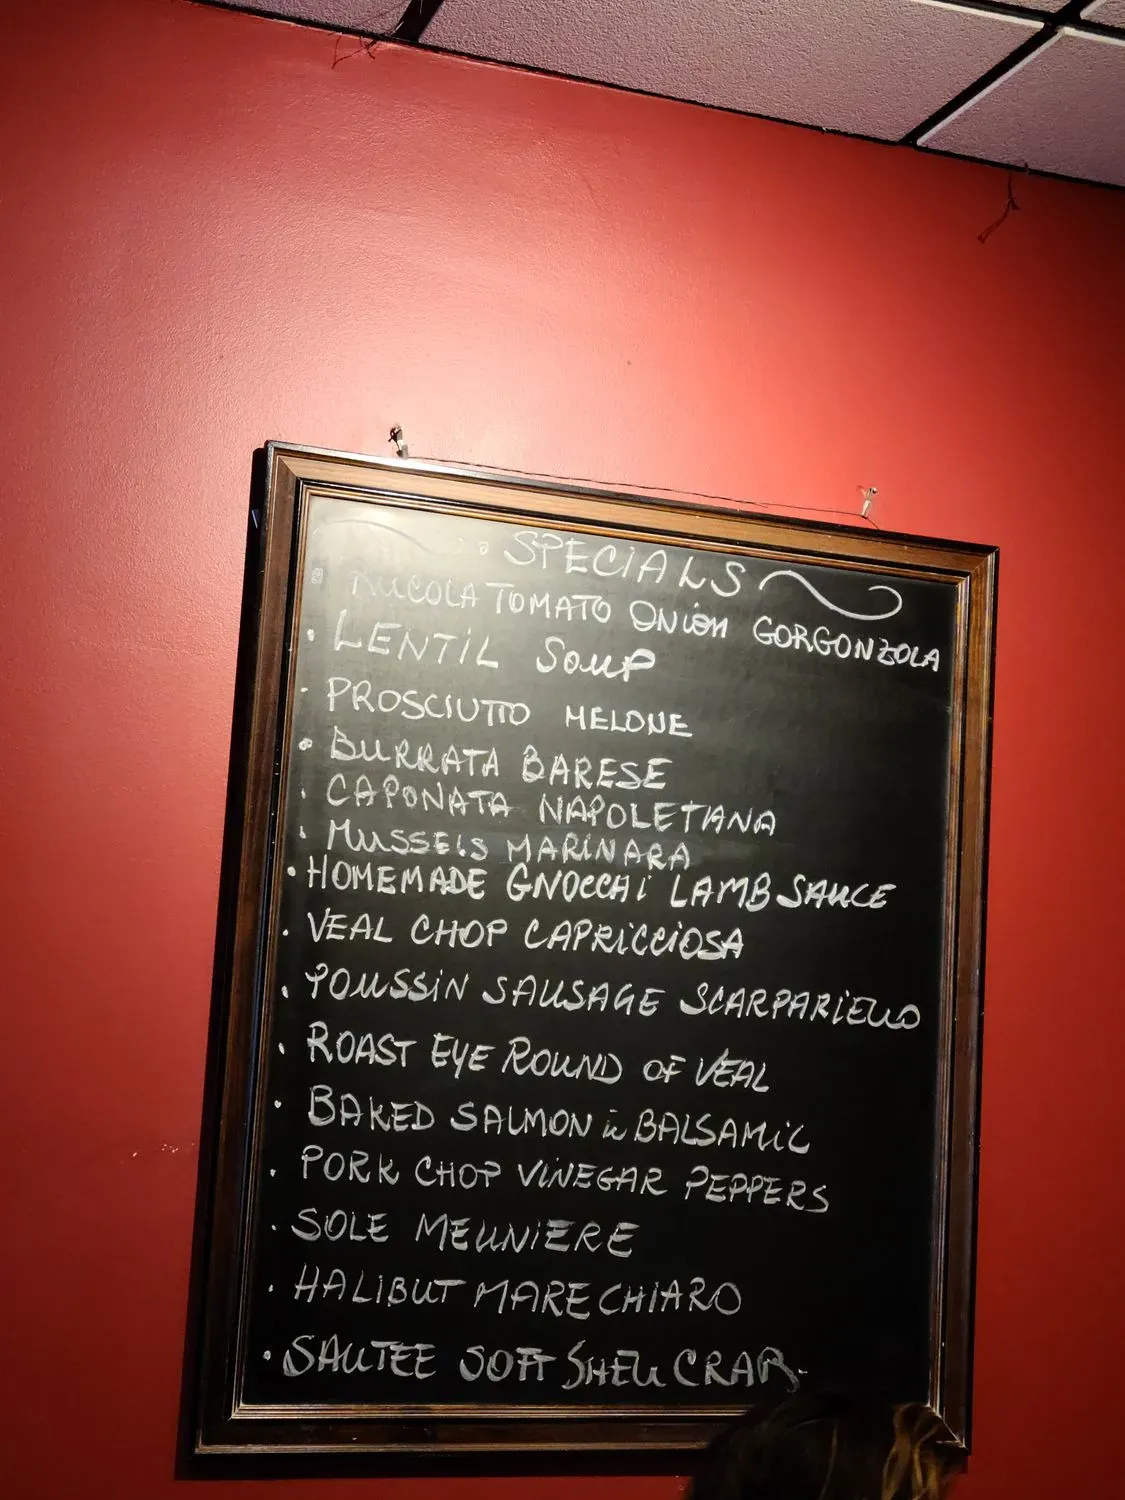 SPECIALS
RUCOLA TOMATO ONION GORGONZOLA
LENTIL SOUP
PROSCIUTTO MELONE
BURRATA BARESE
CAPONATA NAPOLETANA
MUSSELS MARINARA
HOMEMADE GNOCCHI LAMB SAUCE
VEAL CHOP CAPRICCIOSA
POUSSIN SAUSAGE SCARPARIELLO
ROAST EYE ROUND OF VEAL
BAKED SALMON in BALSAMIC
PORK CHOP VINEGAR PEPPERS
SOLE MEUNIERE
HALIBUT MARECHIARO
SAUTEE SOFT SHELL CRAB